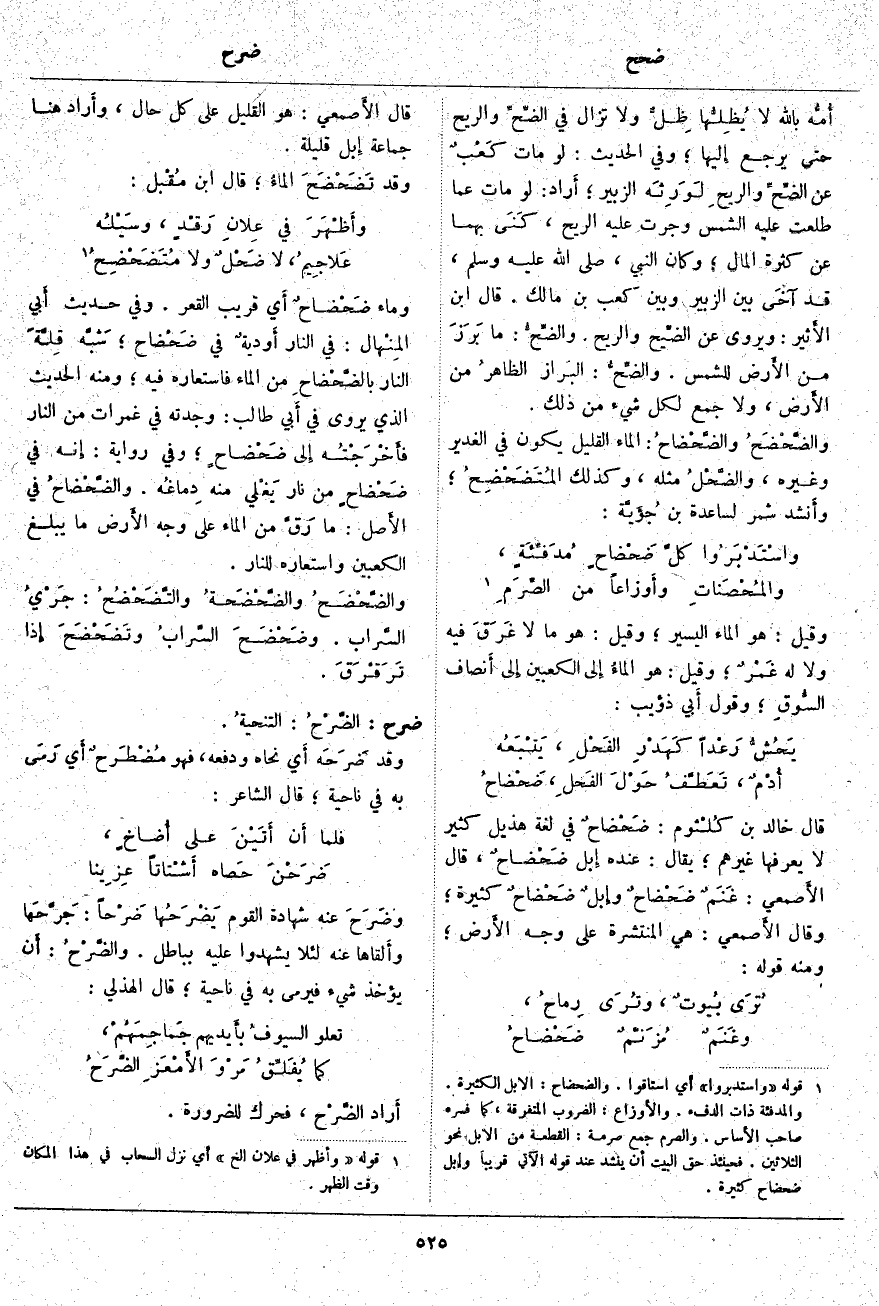 ضحح
ضرح
أُمّه بالله لا يُظِلُّها ظِلٌّ ولا تزال في الضّحِّ والريح
حتى يرجع إليها ؛ وفي الحديث : لو مات كَعْبٌ
عن الضّحِّ والريحِ لَوَرِثَه الزبير ؛ أراد: لو مات عما
طلعت عليه الشمس وجرت عليه الريح ، كَنَى بهما
عن كثرة المال ؛ وكان النبي ، صلى الله عليه وسلم ،
قد آخَى بين الزبير وبين كعب بن مالك . قال ابن
الأثير : ويروى عن الضّيح والريح. والضّحُّ : ما بَرَزَ
من الأرض للشمس . والضّحُّ : البَراز الظاهرُ من
الأرض ، ولا جمع لكل شيء من ذلك .
والضَّحْضَحُ والضَّحْضاحُ: الماء القليل يكون في الغدير
وغيره ، والضَّحْلُ مثله ، وكذلك المُتَضَحْضِحُ ؛
وأنشد شمر لساعدة بن جُؤَيَّة :
واسْتَدْبَرُوا كلَّ ضَحْضاحٍ مُدَفِّئَةٍ ،
والمُحْصَناتِ وأوزاعاً من الصِّرَمِ ١
وقيل : هو الماء اليسير ؛ وقيل : هو ما لا غَرَقَ فيه
ولا له غَمْرٌ ؛ وقيل : هو الماءُ إلى الكعبين إلى أنصاف
السُّوقِ ؛ وقول أبي ذؤيب :
يَحُشُّ رَعْداً كَهَدْرِ الفَحْلِ ، يَتْبَعُه
أُدْمٌ ، تَعَطَّفُ حَوْلَ الفَحْلِ ، ضَحْضاحُ
قال خالد بن كُلْثوم : ضَحْضاحٌ في لغة هذيل كثير
لا يعرفها غيرهم ؛ يقال : عنده إبل ضَحْضاحٌ ، قال
الأصمعي : غَنَمٌ ضَحْضاحٌ وإبلٌ ضَحْضاحٌ كثيرة ؛
وقال الأصمعي : هي المنتشرة على وجه الأرض ؛
ومنه قوله :
تُرَى بُيوتٌ ، وتُرَى رِماحُ ،
وغَنَمٌ مُزَنَّمٌ ضَحْضاحُ
١ قوله «واستدبروا» أي استاقوا . والضحضاح : الابل الكثيرة .
والمدفئة ذات الدفء . والأوزاع : الضروب المتفرقة ، كما فسره
صاحب الأساس . والصرم جمع صرمة : القطعة من الابل نحو
الثلاثين . فحينئذ حق البيت أن ينشد عند قوله الآتي قريباً وإبل
ضحضاح كثيرة .
قال الأصمعي : هو القليل على كل حال ، وأراد هنا
جماعة إبل قليلة .
وقد تَضَحْضَحَ الماءُ ؛ قال ابن مُقْبل :
وأَظْهَرَ في عِلانِ رَقْدٍ ، وسَيْلُه
عَلاجِيمُ، لا ضَحْلٌ ولا مُتَضَحْضِحُ ١
وماء ضَحْضاحٌ أي قريب القعر . وفي حديث أبي
المِنْهال : في النار أوديةٌ في ضَحْضاح ؛ شَبَّه قِلَّةَ
النار بالضَّحْضاحِ من الماء فاستعاره فيه ؛ ومنه الحديث
الذي يروى في أبي طالب: وجدته في غمرات من النار
فأَخْرَجْتُه إلى ضَحْضاحٍ ؛ وفي رواية : إنه في
ضَحْضاحٍ من نار يَغْلي منه دِماغُه . والضَّحْضاحُ في
الأصل : ما رَقَّ من الماء على وجه الأرض ما يبلغ
الكعبين واستعاره للنار .
والضَّحْضَحُ والضَّحْضَحةُ والتَّضَحْضُحُ : جَرْيُ
السَّراب . وضَحْضَحَ السَّرابُ وتَضَحْضَحَ إذا
تَرَقْرَقَ .
ضرح : الضَّرْحُ : التنحيةُ .
وقد ضَرَحَه أي نحاه ودفعه، فهو مُضْطَرِحٌ أي رَمَى
به في ناحية ؛ قال الشاعر :
فلما أن أَتَيْنَ على أُضاخٍ ،
ضَرَحْنَ حَصاه أَشْتاتاً عِزِينا
وضَرَحَ عنه شهادة القوم يَضْرَحُها ضَرْحاً : جَرَّحَها
وألقاها عنه لئلا يشهدوا عليه بباطل . والضَّرْحُ : أن
يؤخذ شيء فيرمى به في ناحية ؛ قال الهذلي :
تعلو السيوفُ بأيديهم جَماجِمَهُمْ،
كما يُفَلَّقُ مَرْوَ الأَمْعَزِ الضَّرَحُ
أراد الضَّرْح ، فحرك للضرورة .
١ قوله « وأظهر في علان الخ » أي نزل السحاب في هذا المكان
وقت الظهر .
٥٢٥